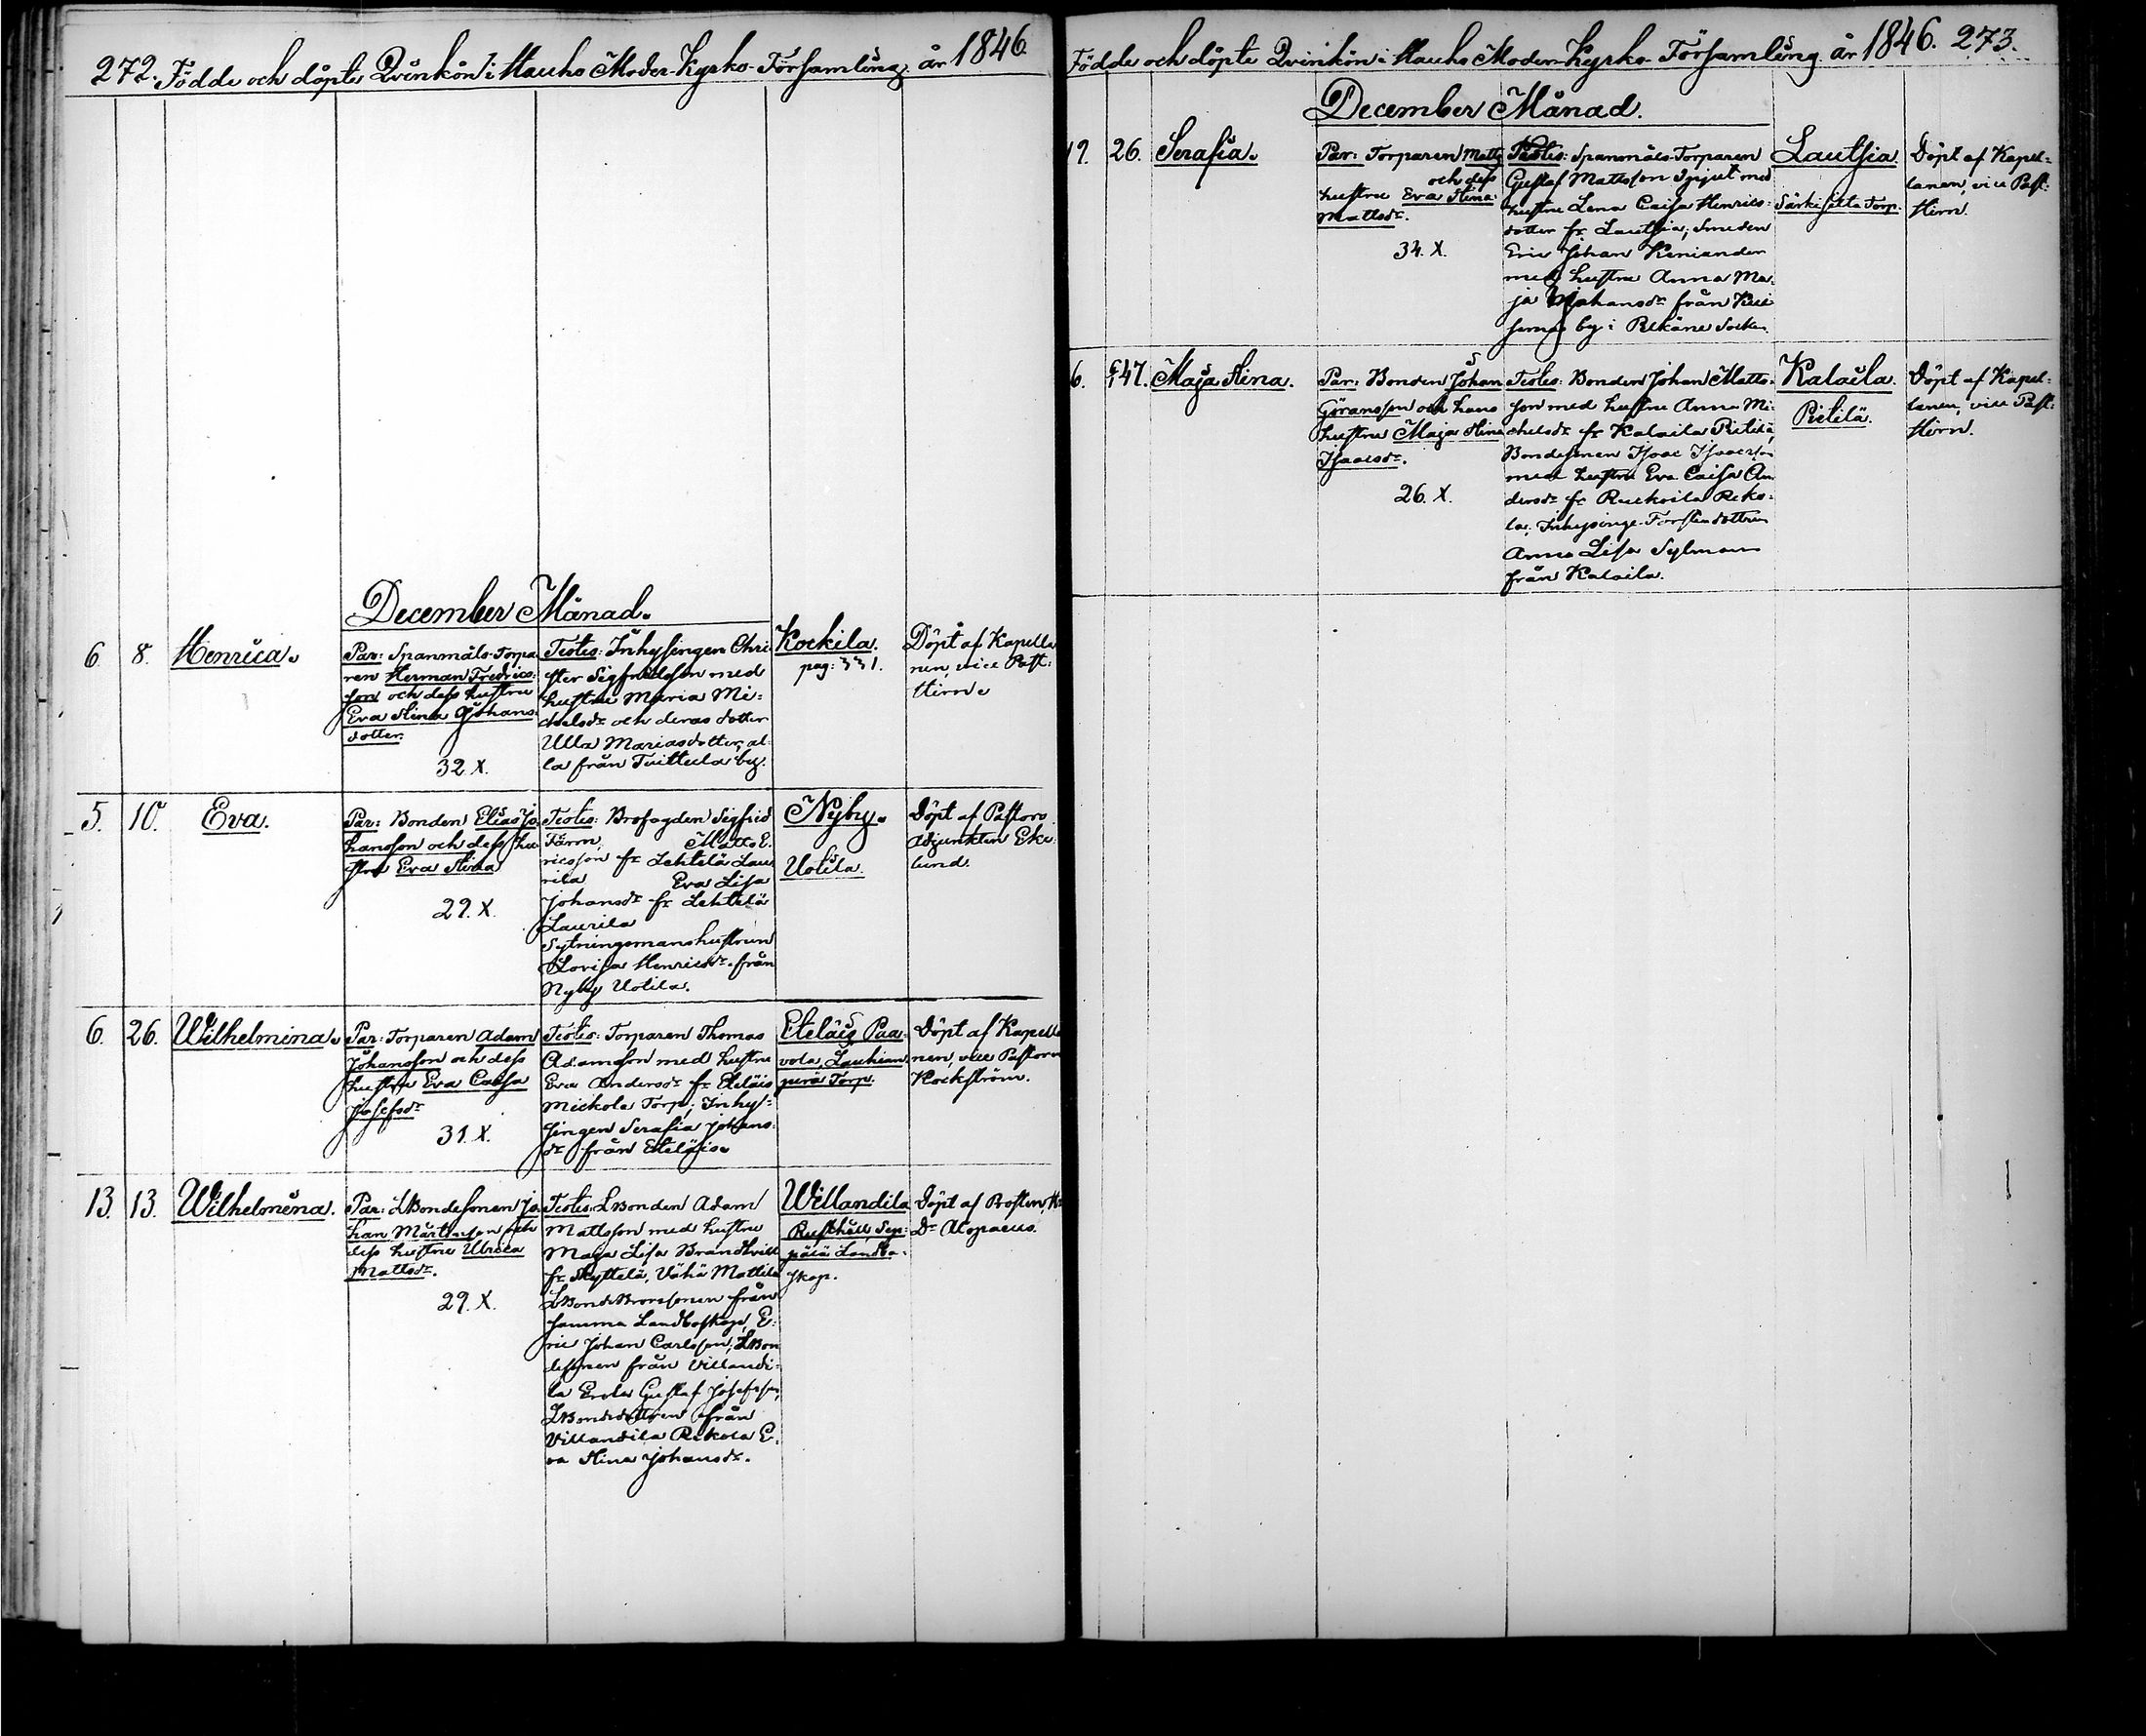 272. Födde och döpte Qvinkön i Hauho Moder-Kyrko-Församling år 1846
December Månad.
6. 8. Henrica.
Par: Spanmåls-Torpa
ren Herman Fredrics-
son och dess hustru
Eva Stina Johans-
dotter.
32 X.
Testes: Inhysingen Chri
ster Sigfridsson med
hustru Maria Mi-
chelsdr och deras dotter
Ulla Mariasdotter, al-
la från Tuittula by.
Kockila.
pag: 331.
Döpt af Kapella
nen, vice Past:
Hirn.
5. 10. Eva.
Par: Bonden Elias Jo-
hansson och dess hu-
stru Eva Stina
29. X.
Testes: Brofogden Sigfrid
Färm, Matts E.
ricsson fr Lehtelä Lau
rila Eva Lisa
Johansdr fr Lehtelä
Laurila
Sytningsmanshustrun
Lovisa Henricsdr. från
Nyby Uotila.
Nyby.
Uotila.
Döpt af Pastors
Adjunkten Eke-
lund.
6. 26. Wilhelmina.
Par: Torparen Adam
Johansson och dess
hustru Eva Caisa
Josefsdr
31. X.
Testes: Torparen Thomas
Adamsson med hustru
Eva Andersdr fr Eteläis
Mickola Torp; Inhys-
singen Serafia Johans-
dr från Eteläis.
Eteläis Paa-
vola, Lauhian
perä Torp.
Döpt af Kapella
nen, vice Pastorn
Hockström.
13. 13. Wilhelmina.
Par: LBondesonen Jo-
han Mårtensson och
dess hustru Ulrica
Mattsdr.
29. X.
Testes: LBonden Adam
Mattsson med hustru
Maja Lisa Brandtvill
fr Skyttelä, Vähä Mattila
LBondeBrorsonen från
samma Landboskap, E-
ric Johan Carlsson; LBon
desonen från Villandi-
la Erola Gustaf Josefsson,
LBondedottren från
Villandila Rekola E-
va Stina Johansdr.
Willandila
Rusthåll, Sep-
pälä Landbo-
skap.
Döpt af Prosten, Hr
Dr Alopaeus.
Födde och döpte Qvinkön i Hauho Moder-Kyrko-Församling år 1846. 273.
December Månad.
19. 26. Serafia.
Par: Torparen Matts
och dess
hustru Eva Stina
Mattsdr.
34. X.
Testes: Spanmåls-Torparen
Gustaf Mattsson Spjut med
hustru Lena Caisa Henrics-
dotter fr Lautsia; Smeden
Eric Johan Keniander
med hustru Anna Ma-
ja Johansdr från
by i Pelkäne Socken
Lautsia.
Särkisilta Torp.
Döpt af Kapel-
lanen, vice Past:
Hirn.
6. 47. Maja Stina.
Par: Bonden Johan
Göransson och hans
hustru Maja Stina
Isaacsdr.
26. X.
Testes: Bonden Johan Matts-
son med hustru Anna Mi-
chelsdr fr Kalaila Pietilä,
Bondesonen Isaac Isaacsson
med hustru Eva Caisa An
dersdr fr Ruckoila Reko-
la; Inhysinge-
Anna Lisa Sylman
från Kalaila.
Kalaila.
Pietilä.
Döpt af Kapel-
lanen, vice Past:
Hirn.